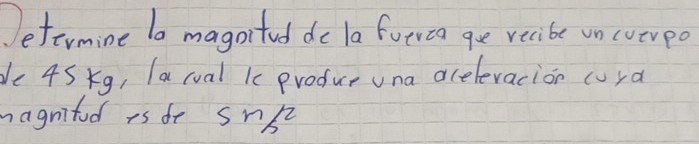 Determine la magnitud de la fuerza que recibe un cuerpo
de 45 kg, la cual le produce una aceleración cuya
magnitud es de 5 m/s²